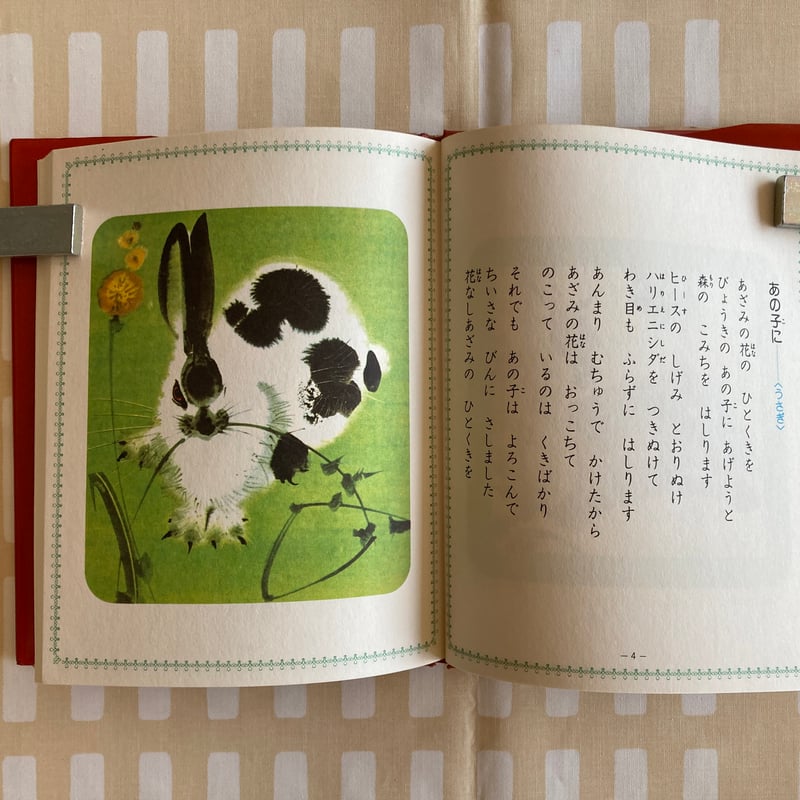 あの子に――〈うさぎ〉
あざみの花の ひとくきを
びょうきの あの子に あげようと
森の こみちを はしります
ヒースの しげみ とおりぬけ
ハリエニシダを つきぬけて
わき目も ふらずに はしります
あんまり むちゅうで かけたから
あざみの花は おっこちて
のこって いるのは くきばかり
それでも あの子は よろこんで
ちいさな びんに さしました
花なしあざみの ひとくきを
—4—